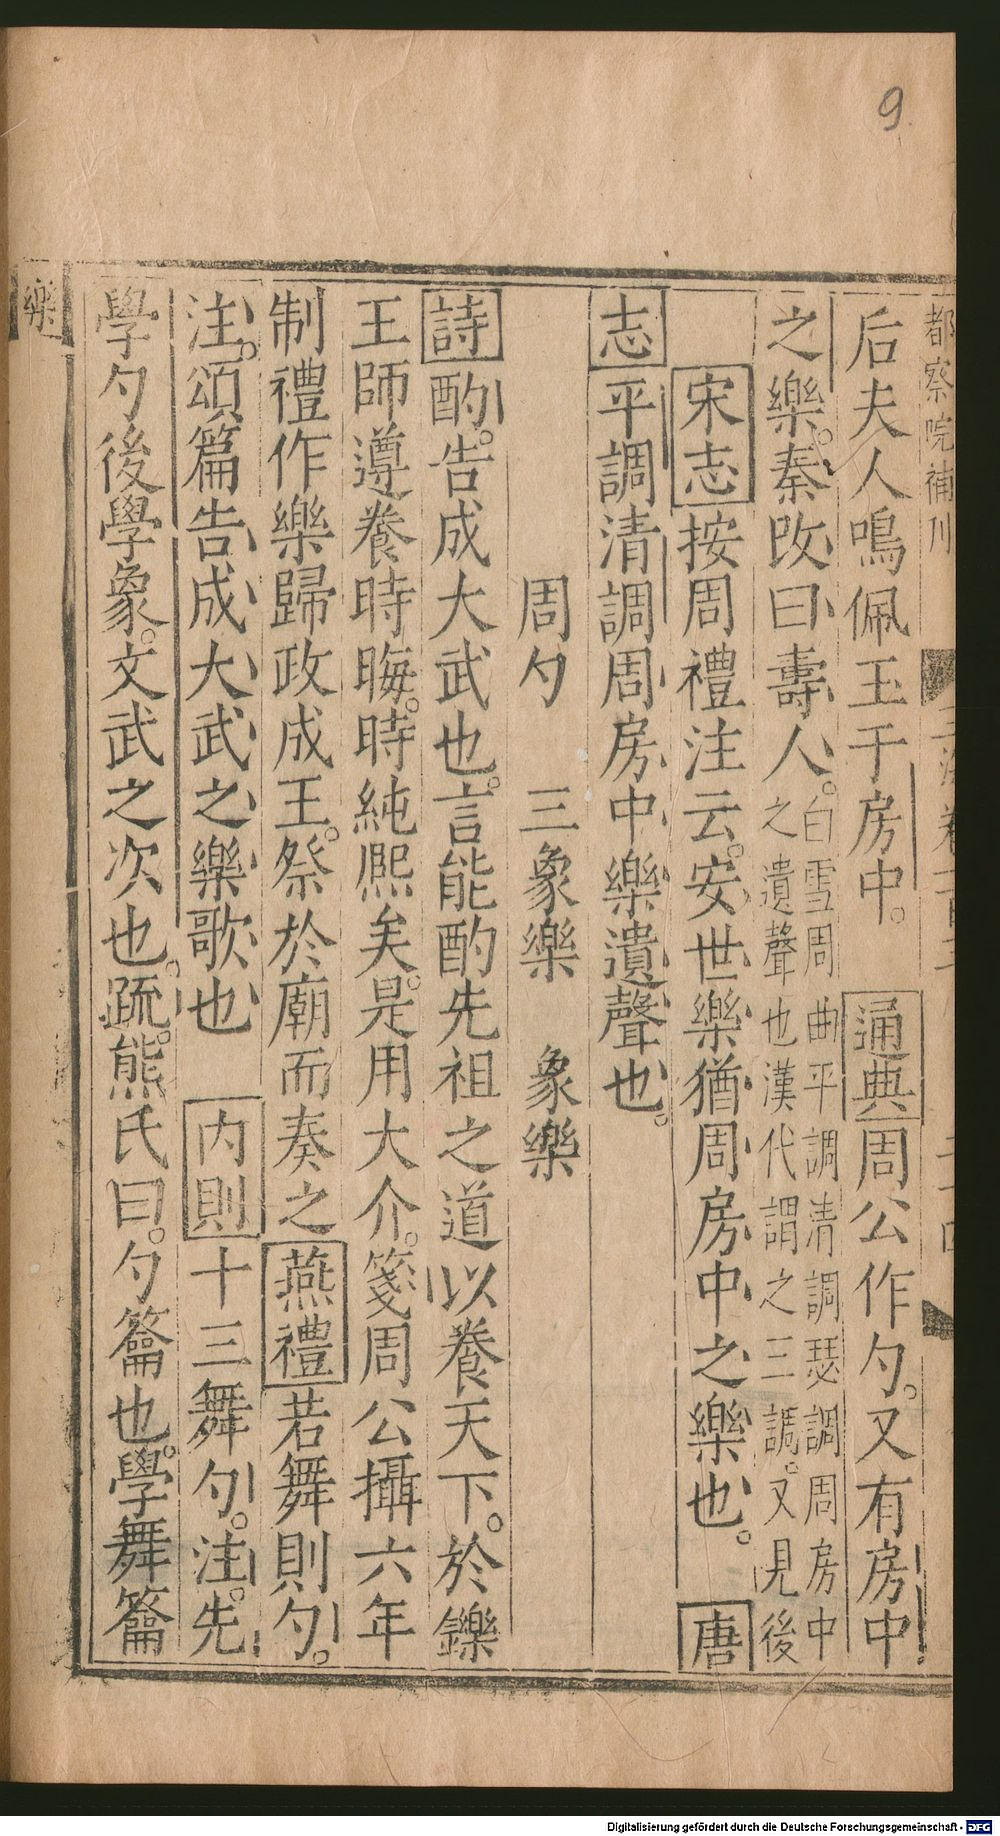 9
都察院補刊
后夫人鳴佩玉于房中。通典周公作勺。又有房中
之樂。秦改曰壽人。白雪周曲平調清調瑟調周房中
之遺聲也漢代謂之三調。又見後
宋志按周禮注云。安世樂猶周房中之樂也。唐
志平調清調周房中樂遺聲也。
周勺 三象樂 象樂
詩酌。告成大武也。言能酌先祖之道以養天下。於鑠
王師遵養時晦。時純熈矣。是用大介。箋周公攝六年
制禮作樂歸政成王。祭於廟而奏之燕禮若舞則勺。
注。頌篇告成大武之樂歌也 内則十三舞勺。注。先
學勺後學象。文武之次也。疏。熊氏曰。勺籥也。學舞籥
樂
Digitalisierung gefördert durch die Deutsche Forschungsgemeinschaft - DFG